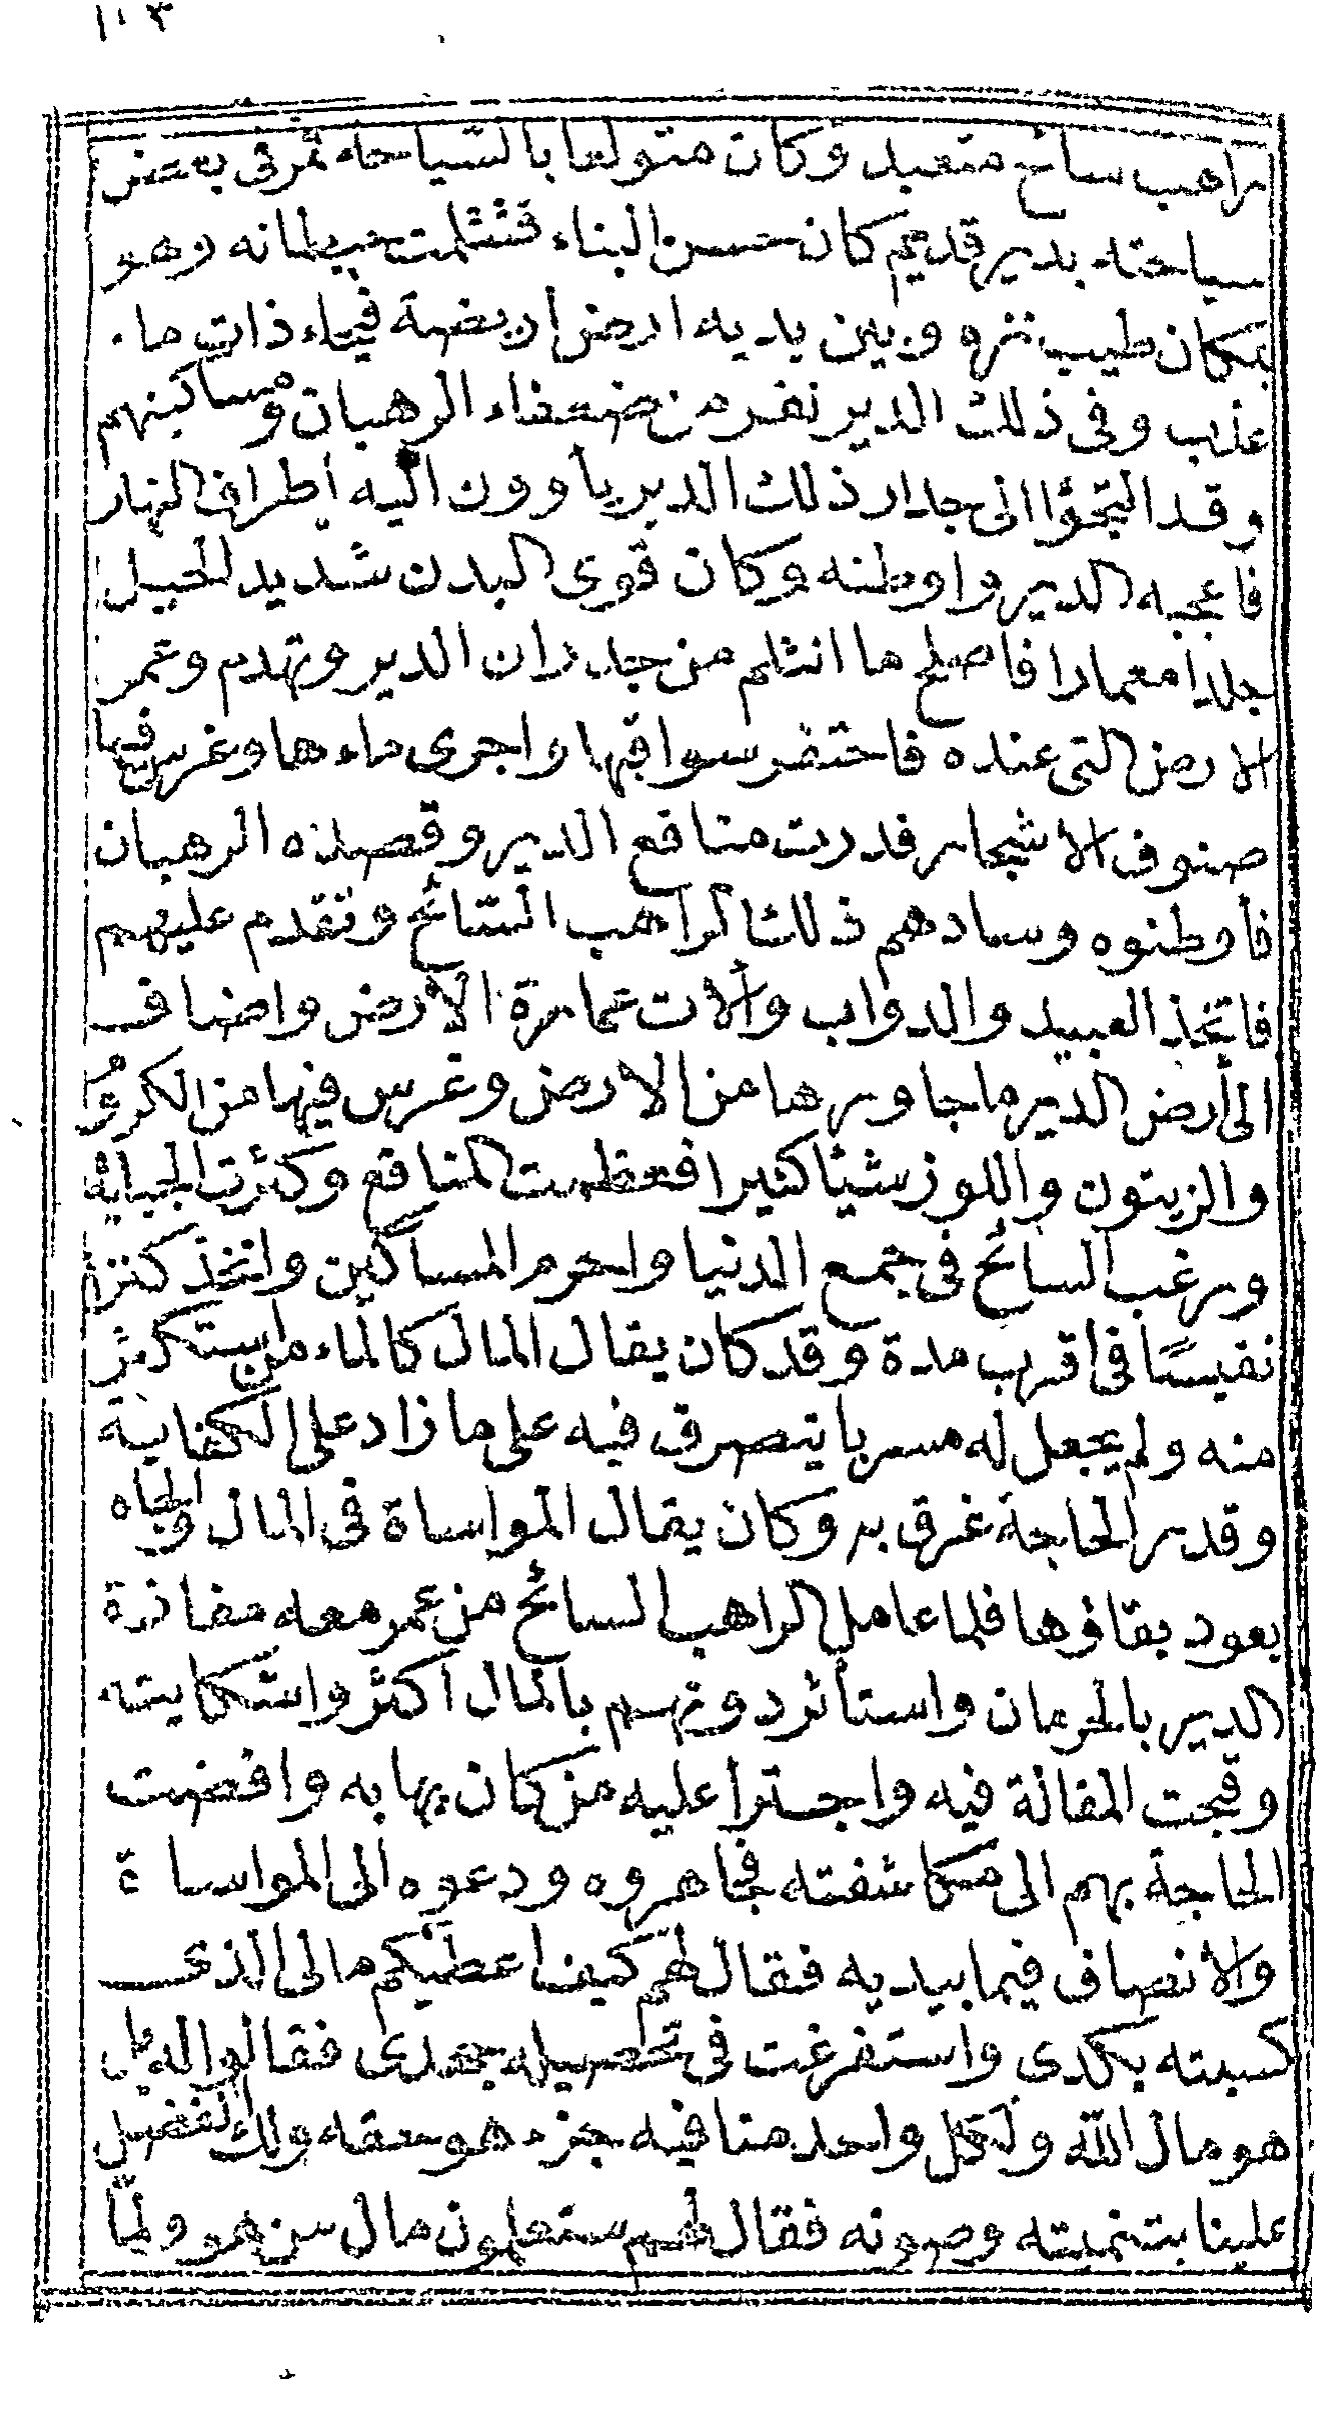 ١٠٣
راهب سائح متعبد وكان متولعا بالسياحة فمر فى بعض
سياحته بدير قديم كان حسن البناء فتثلمت حيطانه وهو
بمكان طيب نزه وبين يديه ارض اريضة فيحاء ذات ماء
عذب وفى ذلك الدير نفر من ضعفاء الرهبان ومساكينهم
وقد التجؤا الى جدار ذلك الدير يأوون اليه أطراف النهار
فاعجبه الدير واوطنه وكان قوى البدن شديد الحيل
جلدا معمارا فاصلح ما انثلم من جدران الدير وتهدم وعمر
الارض التى عنده فاحتفر سواقيها واجرى ماءها وغرس فيها
صنوف الاشجار فدرت منافع الدير وقصده الرهبان
فأوطنوه وسادهم ذلك الراهب السائح وتقدم عليهم
فاتخذ العبيد والدواب وآلات عمارة الأرض واضاف
الى أرض الدير ما جاورها من الارض وغرس فيها من الكروم
والزيتون واللوز شيئا كثيرا فعظمت المنافع وكثرت الجباية
ورغب السائح فى جمع الدنيا واحرم المساكين واتخذ كنزا
نفيسًا فى اقرب مدة وقد كان يقال المال كالماء من استكثر
منه ولم يجعل له مسربا يتصرف فيه على ما زاد على الكفاية
وقدر الحاجة غرق به وكان يقال المواساة فى المال والجاه
يعود بقاؤها فلما عامل الراهب السائح من عمر معه مفازة
الدير بالحرمان واستأثر دونهم بالمال اكثروا شكايته
وقبحت المقالة فيه واجترأ عليه من كان يهابه وافضت
الحاجة بهم الى مكاشفته فجاهروه ودعوه الى المواساة
والانصاف فيما بيديه فقال لهم كيف اعطيكم مالى الذى
كسبته بكدى واستفرغت فى تحصيله جهدى فقالوا له بل
هو مال الله ولكل واحد منا فيه جزء هو حقه ولك الفضل
علينا بتنميته وصونه فقال لهم ستعلمون مال من هو ولما